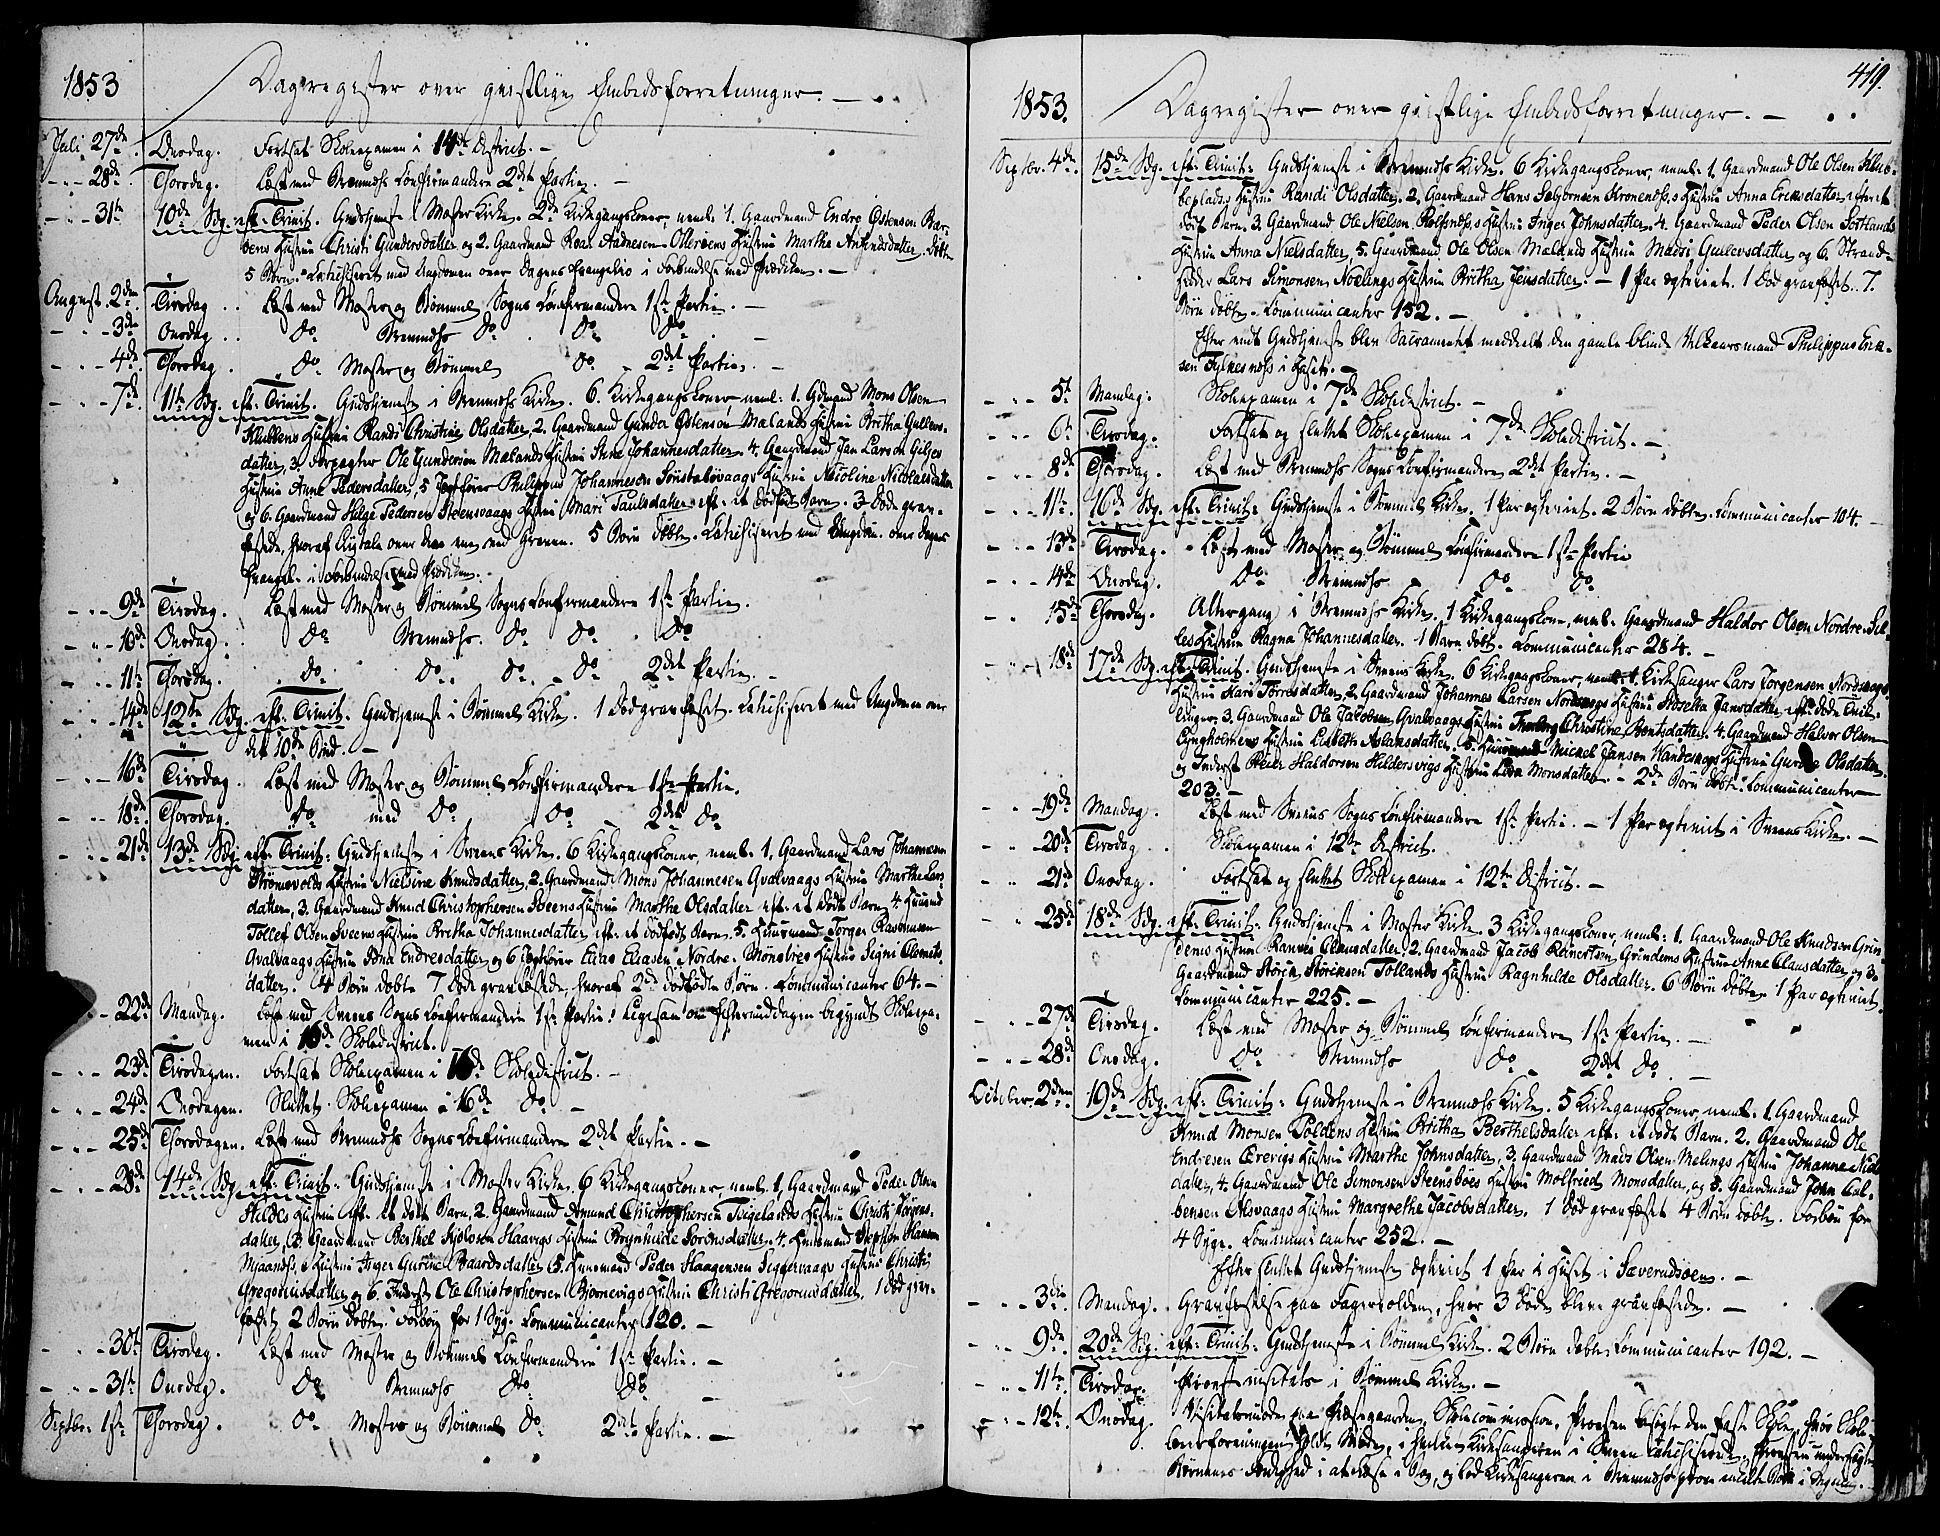 1853
Dagregister over geistlige Embedsforretninger. —
Juli 27de Onsdag. Fortsat Skoleexamen i 14de District. —
28de Thorsdag. Læst med Bremnæs Confirmandere 2det Partie. —
31te 10de Sdg. eft. Trinit. Gudstjeneste i Moster Kirke. 2de Kirkegangskoner, neml: 1. Gaardmand Endre Østensen
Hustru Christi Gundersdatter og 2. Gaardmand Roar Aadnesen Hustru Martha
5 Børn. Catechiseret med Ungdommen over Dagens Evangelie i Forbindelse med Prædiken. —
August. 2den Tirsdag Læst med Moster og Bømmel Sogns Confirmandere 1ste Partie. —
3die Onsdag Do Bremnæs Do Do Do
4de Thorsdag Do Moster og Bømmel Do 2det Partie. —
7de 11te Sdg. eft. Trinit. Gudstjeneste i Bremnæs Kirke. 6 Kirkegangskoner neml: 1. Gdmand Mons Olsen
Klubbens Hustru Randi Christine Olsdatter, 2. Gaardmand Gunder Østensen Mælands Hustru Britha Gullevs-
datter, 3. Forpagter Ole Gundersen Mælands Hustru Johannesdatter. 4. Gaardmand Jan Larsen Giljes
Hustru Anne Pedersdatter, 5 Philippus Johannesen Hustru Nicoline Nicolaisdatter
og 6. Gaardmand Helge Pedersen Steensvaags Hustru Mari Paulsdatter eft: et dødfødt Barn. 3 Døde gra-
fæstede, hvoraf Ligtale over den ene ved Graven. 5 Børn døbte. Catechiseret med Ungdom. over Dagens
Evangel. i Forbindelse med Prædiken.
9de Tirsdag. Læst med Moster og Bømmel Sogns Confirmandere 1ste Partie.
10de Onsdag. Do Bremnæs Do Do Do
11te Thorsdag. Do Do Do Do 2det Partie. —
14de 12te Sdg. eft. Trinit. Gudstjeneste i Bømmel Kirke. 1 Død grafæstet. Catechiseret med Ungdommen over
det 10de Bud. —
16de Tirsdag. Læst med Moster og Bømmel Confirmandere 1ste Partie.
18de Thorsdag. Do med Do Do 2det Do
21de 13de Sdg. eft. Trinit: Gudstjeneste i Sveens Kirke. 6 Kirkegangskoner, neml: 1. Gaardmand Lars Johannesen
Strømsvolds Hustru Nielsine Knudsdatter, 2. Gaardmand Mons Johannesen Qvalvaags Hustru Marthe Lars-
datter, 3. Gaardmand Knud Christophersen Sveens Hustru Marthe Olsdatter eft. et dødt Barn, 4. Huusmd
Tollef Olsen Sveens Hustru Britha Johannesdatter eft: et dødfødt Barn. 5. Huusmand Torger Rasmussen
Qvalvaags Hustru Endresdatter, og 6 Elias Eliasen Nordre Hustru Signi Clemets-
datter. 4 Børn døbte 7 Døde grafæstede, hvoraf 2de dødfødte Børn. Communicanter 64. —
22de Mandag. Læst med Sveens Sogns Confirmandere 1ste Partie. Ligesaa om Eftermiddagen begyndt Skoleexa-
men i 16de Skoledistrict.
23de Tirsdagen. Fortsat Skoleexamen i 16de Skoledistrict. —
24de Onsdagen. Sluttet Skoleexamen i 16de Do —
25de Thorsdagen. Læst med Bremnæs Sogns Confirmandere 2det Partie. —
28de 14de Sdg. eft. Trinit: Gudstjeneste i Moster Kirke. 6 Kirkegangskoner, neml: 1, Gaardmand Peder Olsen
Hustru eft. et dødt Barn, 2. Gaardmand Christophersen Hustru Christi Jørgens-
datter, 3. Gaardmand Berthel Haavigs Hustru Brynhilde Sørensdatter, 4. Huusmand Hansen
Hustru Inger Gurine Baardsdatter 5. Huusmand Peder Haagensen Siggervaags Hustru Christi
Gregoriusdatter og 6. Inderst Ole Christophersen Hustru Christi Gregoriusdatter. 1 Død gra-
fæstet. 2 Børn døbte. Forbøn for 1 Syg. Communicanter 120. —
30te Tirsdag. Læst med Moster og Bømmels Confirmandere 1ste Partie. —
31te Onsdag. Do Bremnæs Do Do
Septbr. 1ste Thorsdag. Do Moster og Bømmel Do 2det Partie. —
419.
1853.
Dagregister over geistlige Embedsforretninger. —
Septbr. 4de 15de Sdg. eft. Trinit: Gudstjeneste i Bremnæs Kirke. 6 Kirkegangskoner, neml: 1. Gaardmand Ole Olsen
Hustru Randi Olsdatter, 2. Gaardmand Hans Hustru Anna Ericsdatter efter et
dødt Barn. 3. Gaardmand Ole Nielsen Hustru Inger Johnsdatter. 4. Gaardmand Peder Olsen
Hustru Anna Nielsdatter, 5. Gaardmand Ole Olsen Mælands Hustru Madsi Gullevsdatter og 6. Strand-
sidder Lars Simonsen Hustru Britha Jensdatter. — 1 Par egteviet. 1 Død grafæstet. 7.
Børn døbte. Communicanter 152. —
Efter endt Gudstjeneste blev Sacramentet meddeelt den gamle blinde Vilkaarsmand Philippus Erik-
sen i Huset. —
5te Mandag. Skoleexamen i 7de Skoledistrict. —
6te Tirsdag. Fortsat og sluttet Skoleexamen i 7de Skoledistrict. —
8de Thorsdag. Læst med Bremnæs Sogns Confirmandere 2det Partie. —
11te 16de Sdg. eft. Trinit: Gudstjeneste i Bømmel Kirke. 1 Par egteviet. 2 Børn døbte. Communicanter 104. —
13de Tirsdag. Læst med Moster og Bømmel Confirmandere 1ste Partie
14de Onsdag. Do Bremnæs Do Do
15de Thorsdag. Altergang i Bremnæs Kirke. 1 Kirkegangskone, neml. Gaardmand Haldor Olsen Nordre-
Hustru Ragna Johannesdatter. 1 Barn døbt. Communicanter 284. —
18de 17de Sdg. eft. Trinit. Gudstjeneste i Sveens Kirke. 6 Kirkegangskoner, neml. 1. Kirkesanger Lars Jørgensen
Hustru Kari Torresdatter, 2. Gaardmand Johannes Larsen Hustru Jansdatter eft. døde Tvil-
linger. 3. Gaardmand Ole Jacobsen Qvalvaags Hustru Christine Bentsdatter. 4. Gaardmand Halvor Olsen
Hustru Lisbeth Aslaksdatter. 5. Huusmand Mickel Jansen Hustru Gurine Olsdatter
og Inderst Peder Haldorsen Hustru Monsdatter. — 2de Børn døbte. Communicanter
203. —
19de Mandag. Læst med Sveens Sogns Confirmandere 1ste Partie. — 1 Par egteviet i Sveens Kirke. —
20de Tirsdag Skoleexamen i 12te District.
21de Onsdag. Fortsat og sluttet Skoleexamen i 12te District. —
25de 18de Sdg. eft. Trinit: Gudstjeneste i Moster Kirke 3 Kirkegangskoner, neml: 1. Gaardmand Ole Knudsen Grin-
dems Hustru Clausdatter, 2. Gaardmand Jacob Reinertsen Grindems Hustru Anne Clausdatter, og 3.
Gaardmand Størk Størksen Tollands Hustru Ragnhilde Olsdatter. 6 Børn døbte. 1 Par egteviet.
Communicanter 225. —
27de Tirsdag. Læst med Moster og Bømmel Confirmandere 1ste Partie. —
28de Onsdag. Do Bremnæs Do 2det Do. —
October. 2den 19de Sdg. eft. Trinit: Gudstjeneste i Bremnæs Kirke. 5 Kirkegangskoner, neml: 1. Gaardmand
Knud Monsen Hustru Britha Berthelsdatter eft. et dødt Barn. 2. Gaardmand Ole
Endresen Hustru Marthe Johnsdatter, 3. Gaardmand Mads Olsen Melings Hustru Johanne Niels-
datter, 4. Gaardmand Ole Simonsen Steensbøes Hustru Molfried Monsdatter, og 5. Gaardmand John
Hustru Margrethe Jacobsdatter. 1 Død grafæstet 4 Børn døbte. Forbøn for
4 Syge. Communicanter 252. —
Efter sluttet Gudstjeneste egteviet 1 Par i Huset i —
3die Mandag. Grafæstelse paa hvor 3 Døde bleve grafæstede. —
9de 20de Sdg. eft. Trinit: Gudstjeneste i Bømmel Kirke. 2 Børn døbte. Communicanter 192. —
11te Tirsdag. Provstevisitats i Bømmel Kirke. —
12te Onsdag. Visitatsmøde paa Præstegaarden, Skolecommission. Provsten besøgte den faste Skole, hvor Skole-
lærerforeningen holdt Møde, i hvilken Kirkesangeren i Sveen catechiserede, Provsten undersøgte
Børnenes Færdighed i at læse i Bog, og lod Kirkesangeren i Bremnæs prøve